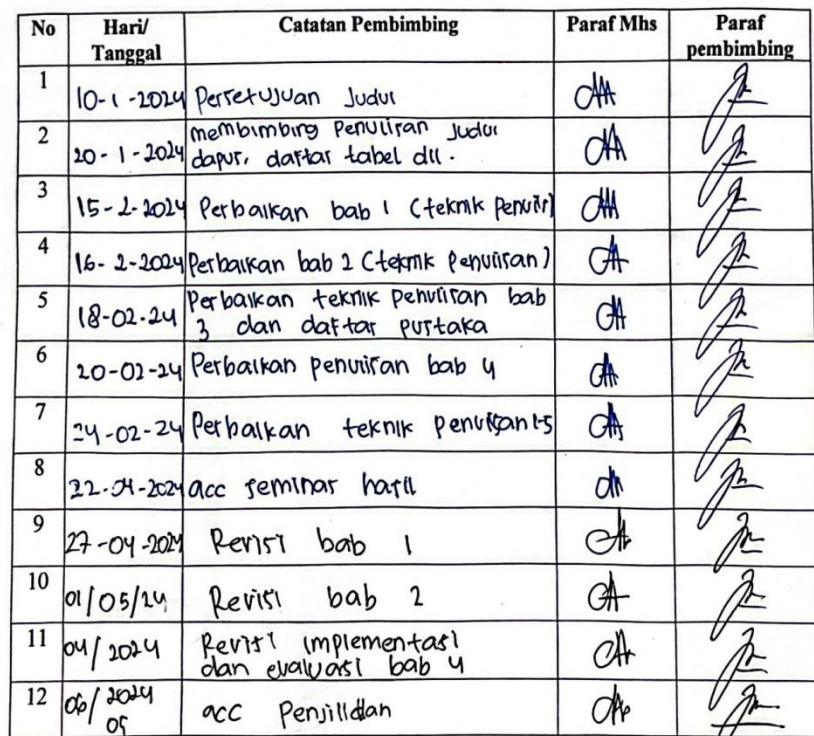 No Hari/ Tanggal Catatan Pembimbing Paraf Mhs Paraf pembimbing
1 10-1-2024 Persetujuan Judul
2 20-1-2024 membimbing Penulisan Judul
dapus, daftar tabel dll.
3 15-2-2024 Perbaikan bab 1 (teknik Penulis)
4 16-2-2024 Perbaikan bab 2 (teknik Penulisan)
5 18-02-24 Perbaikan teknik penulisan bab
3 dan daftar pustaka
6 20-02-24 Perbaikan penulisan bab 4
7 24-02-24 Perbaikan teknik penulisan 1-5
8 22-04-2024 acc seminar hasil
9 27-04-2024 Revisi bab 1
10 01/05/24 Revisi bab 2
11 04/2024 Revisi implementasi
dan evaluasi bab 4
12 06/2024
05 acc Penjilidan